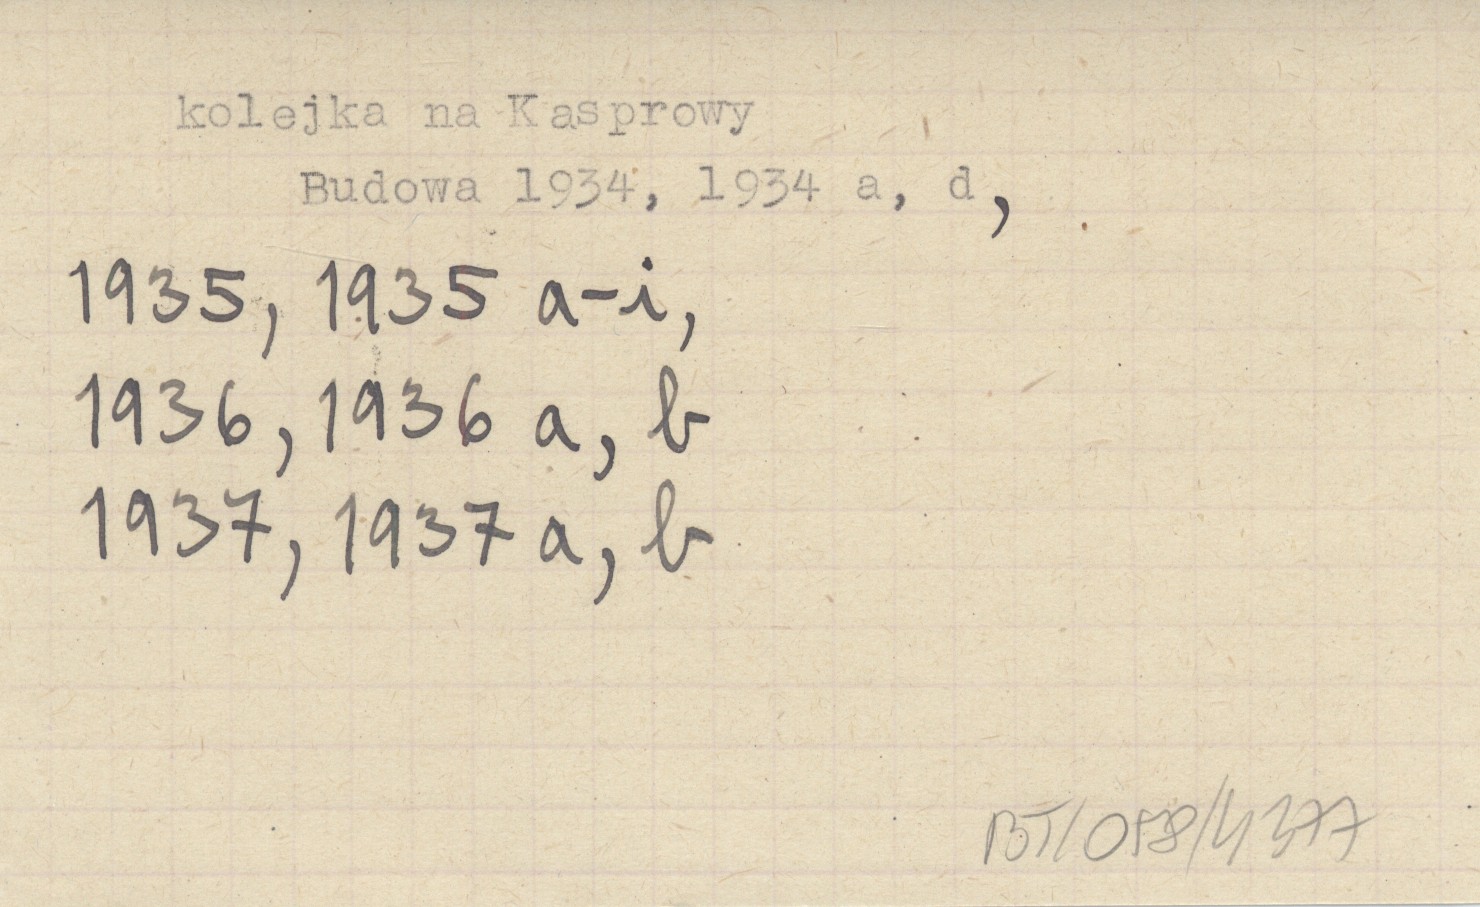 kolejka na Kasprowy
Budowa 1934, 1934 a, d,
1935, 1935 a-i,
1936, 1936 a, b
1937, 1937 a, b
BT/058/4377